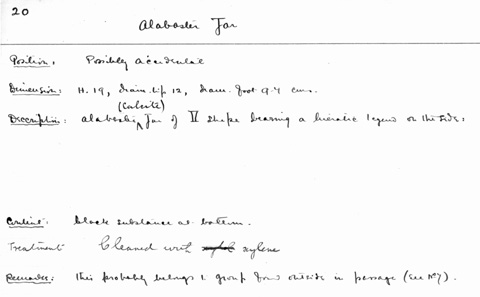 20
Alabaster Jar
Position: Possibly accidental
Dimension: H. 19, diam. lip 12, diam. foot 9.7 cms.
(Calcite)
Description: Alabaster Jar of V shape bearing a hieratic legend on the side:
Content: black substance at bottom.
Treatment Cleaned with xylene
Remarks: this probably belongs to group found outside in passage (see No 7).